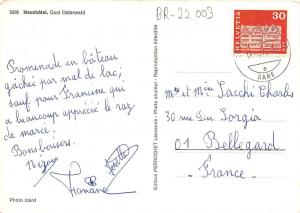 0398 Neuchâtel. Quai Osterwald
BR-22 003
HELVETIA
30
GARE
Promenade en bâteau
gâchée par mal de lac,
sauf pour Francine qui
a beaucoup apprécié le raz
de marée!
Bons baisers.
Mr et Mme Sacchi Charles
30 rue Per Sorgia
01 Bellegard
France
Edition PERROCHET Lausanne - Photo couleur - Reproduction interdite
Photo Izard